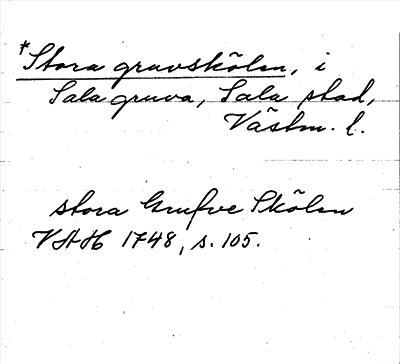 *Stora gruvskölen, i
Sala gruva, Sala stad,
Västm. l.
stora Grufve Skölen
VAH 1748, s. 105.